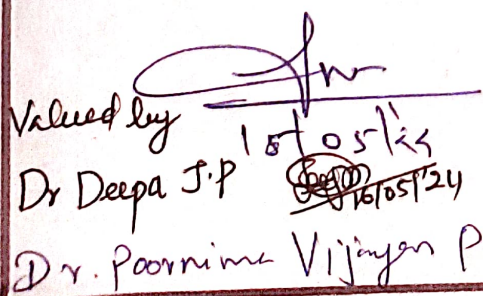 Valued by
15/05/24
Dr Deepa J.P 16/05/'24
Dr. Poornima Vijayan P